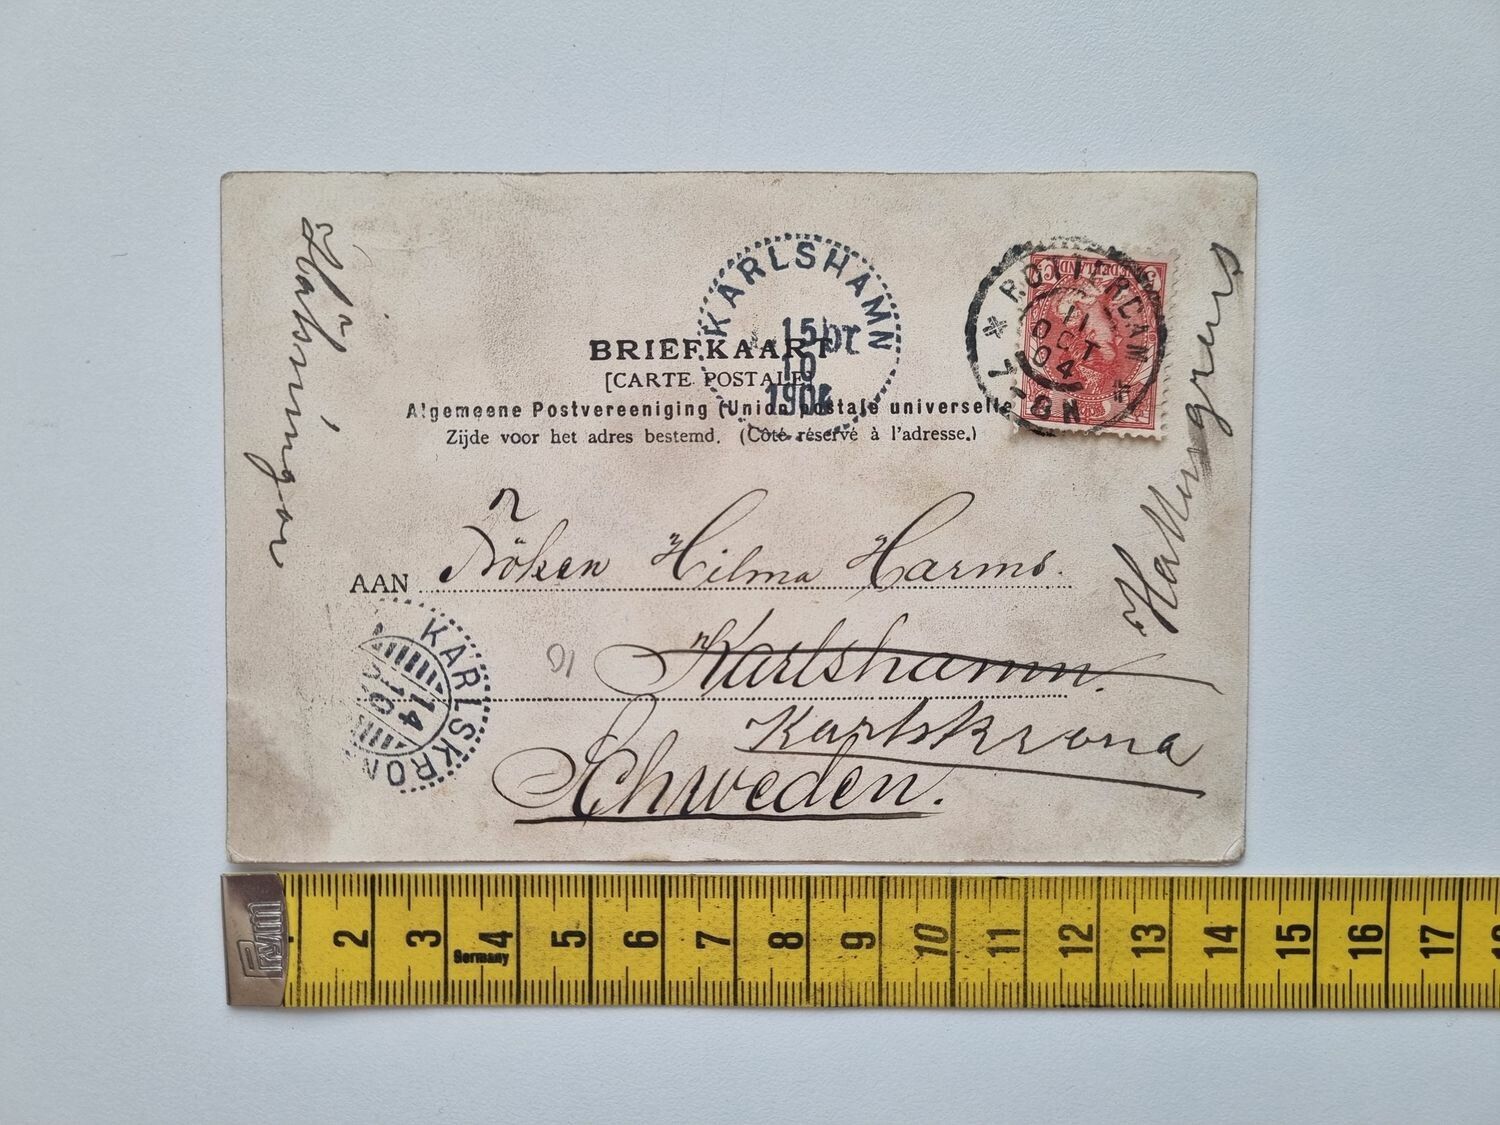 KARLSHAMN
15 10
1904
ROTTERDAM
11
OCT
04
NEDERLAND
BRIEFKAART
[CARTE POSTALE]
Algemeene Postvereeniging (Union postale universelle
Zijde voor het adres bestemd. (Côté réservé à l'adresse.)
Hälsningar
Hallengrens
AAN Fröken Hilma Harms.
Karlshamn.
Karlskrona
Schweden.
KARLSKRON
14
10
Prym
2 3 4 5 6 7 8 9 10 11 12 13 14 15 16 17 18
Germany